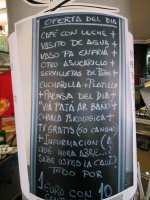 OFERTA DEL DIA
CAFÉ CON LECHE +
VASITO DE AGUA +
VASO PA ENFRIA +
OTRO AZUCARILLO +
SERVILLETAS DE PAPEL+
CUCHARILLA + PLATILLO
+ PRENSA DEL DIA +
"VIA PATÁ AR BAÑO" +
CHARLA ECOLOGICA +
TV GRATIS (50 CANALE)
+ INFORMACION (A
QUE HORA ABRE...?
SABE USTED LA CALLE?)
TODO POR
1 EURO CON 10